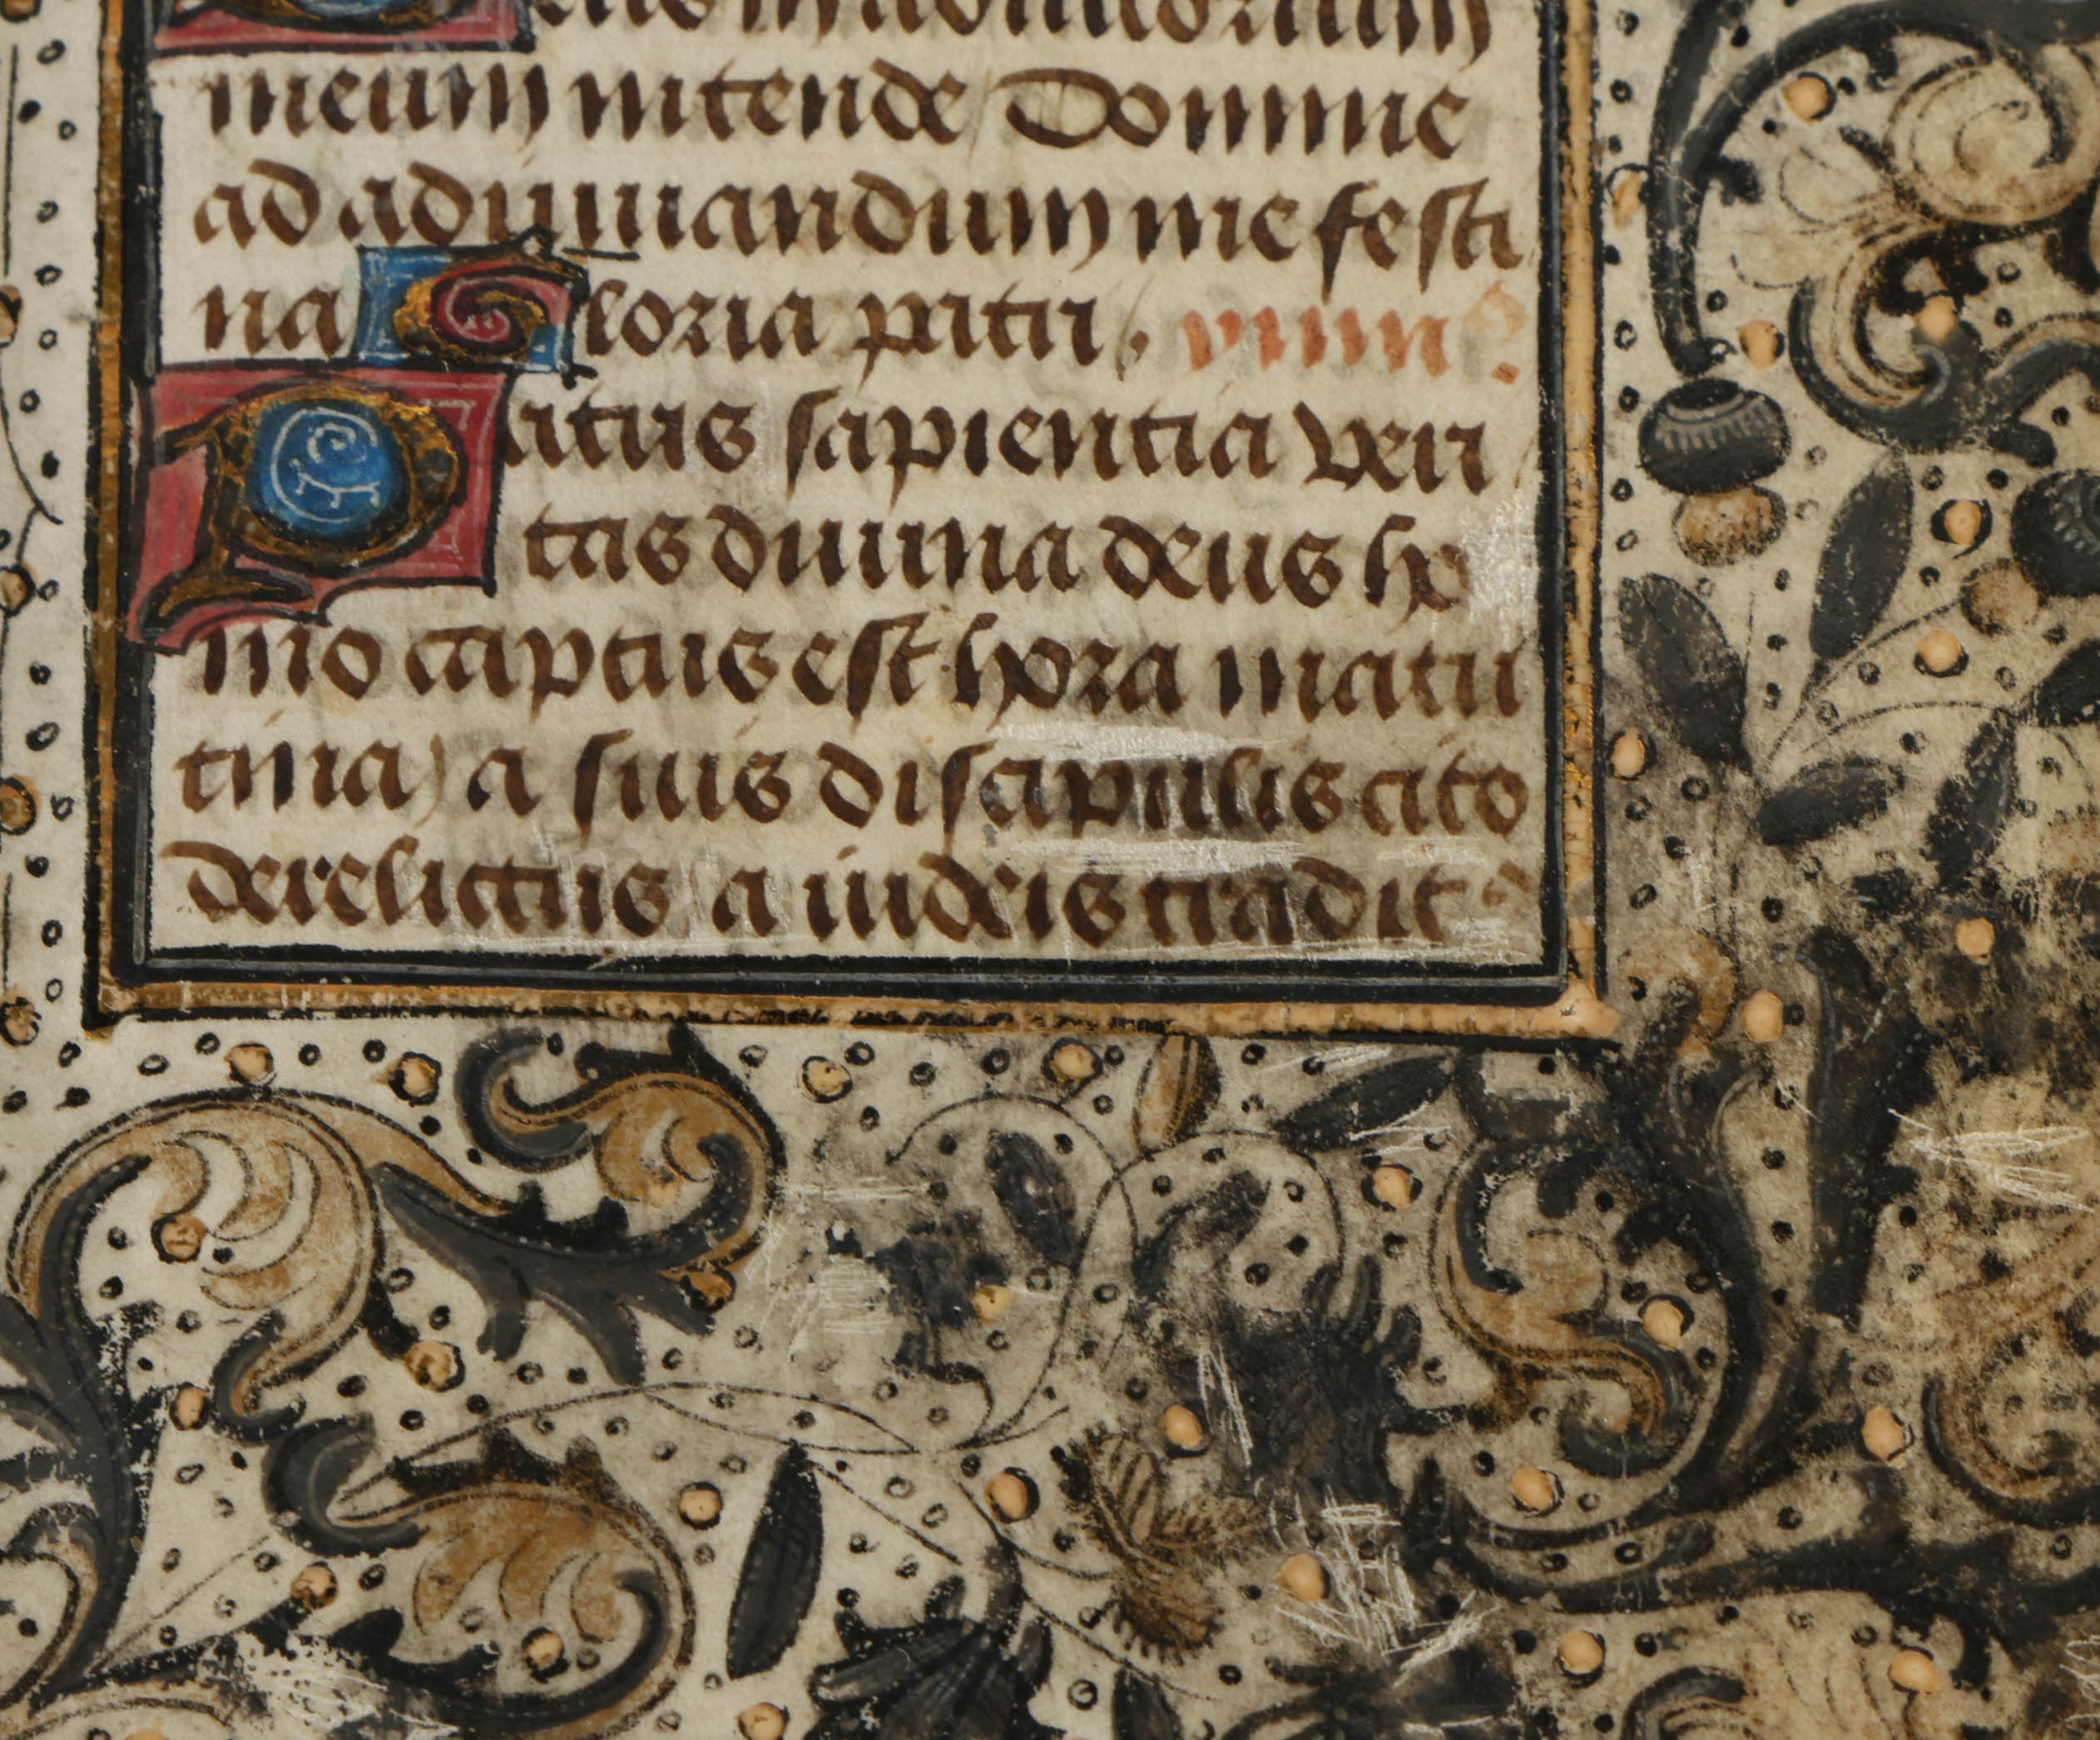 Deus in adiutorium
meum intende Domine
ad adiuuandum me festi
na Gloria pitri, ymnꝰ.
Patus sapientia veri
tas diuina deus ho
mo captus est hora matu
tina) a suis discipulis cito
derelictus a iudeis tradit